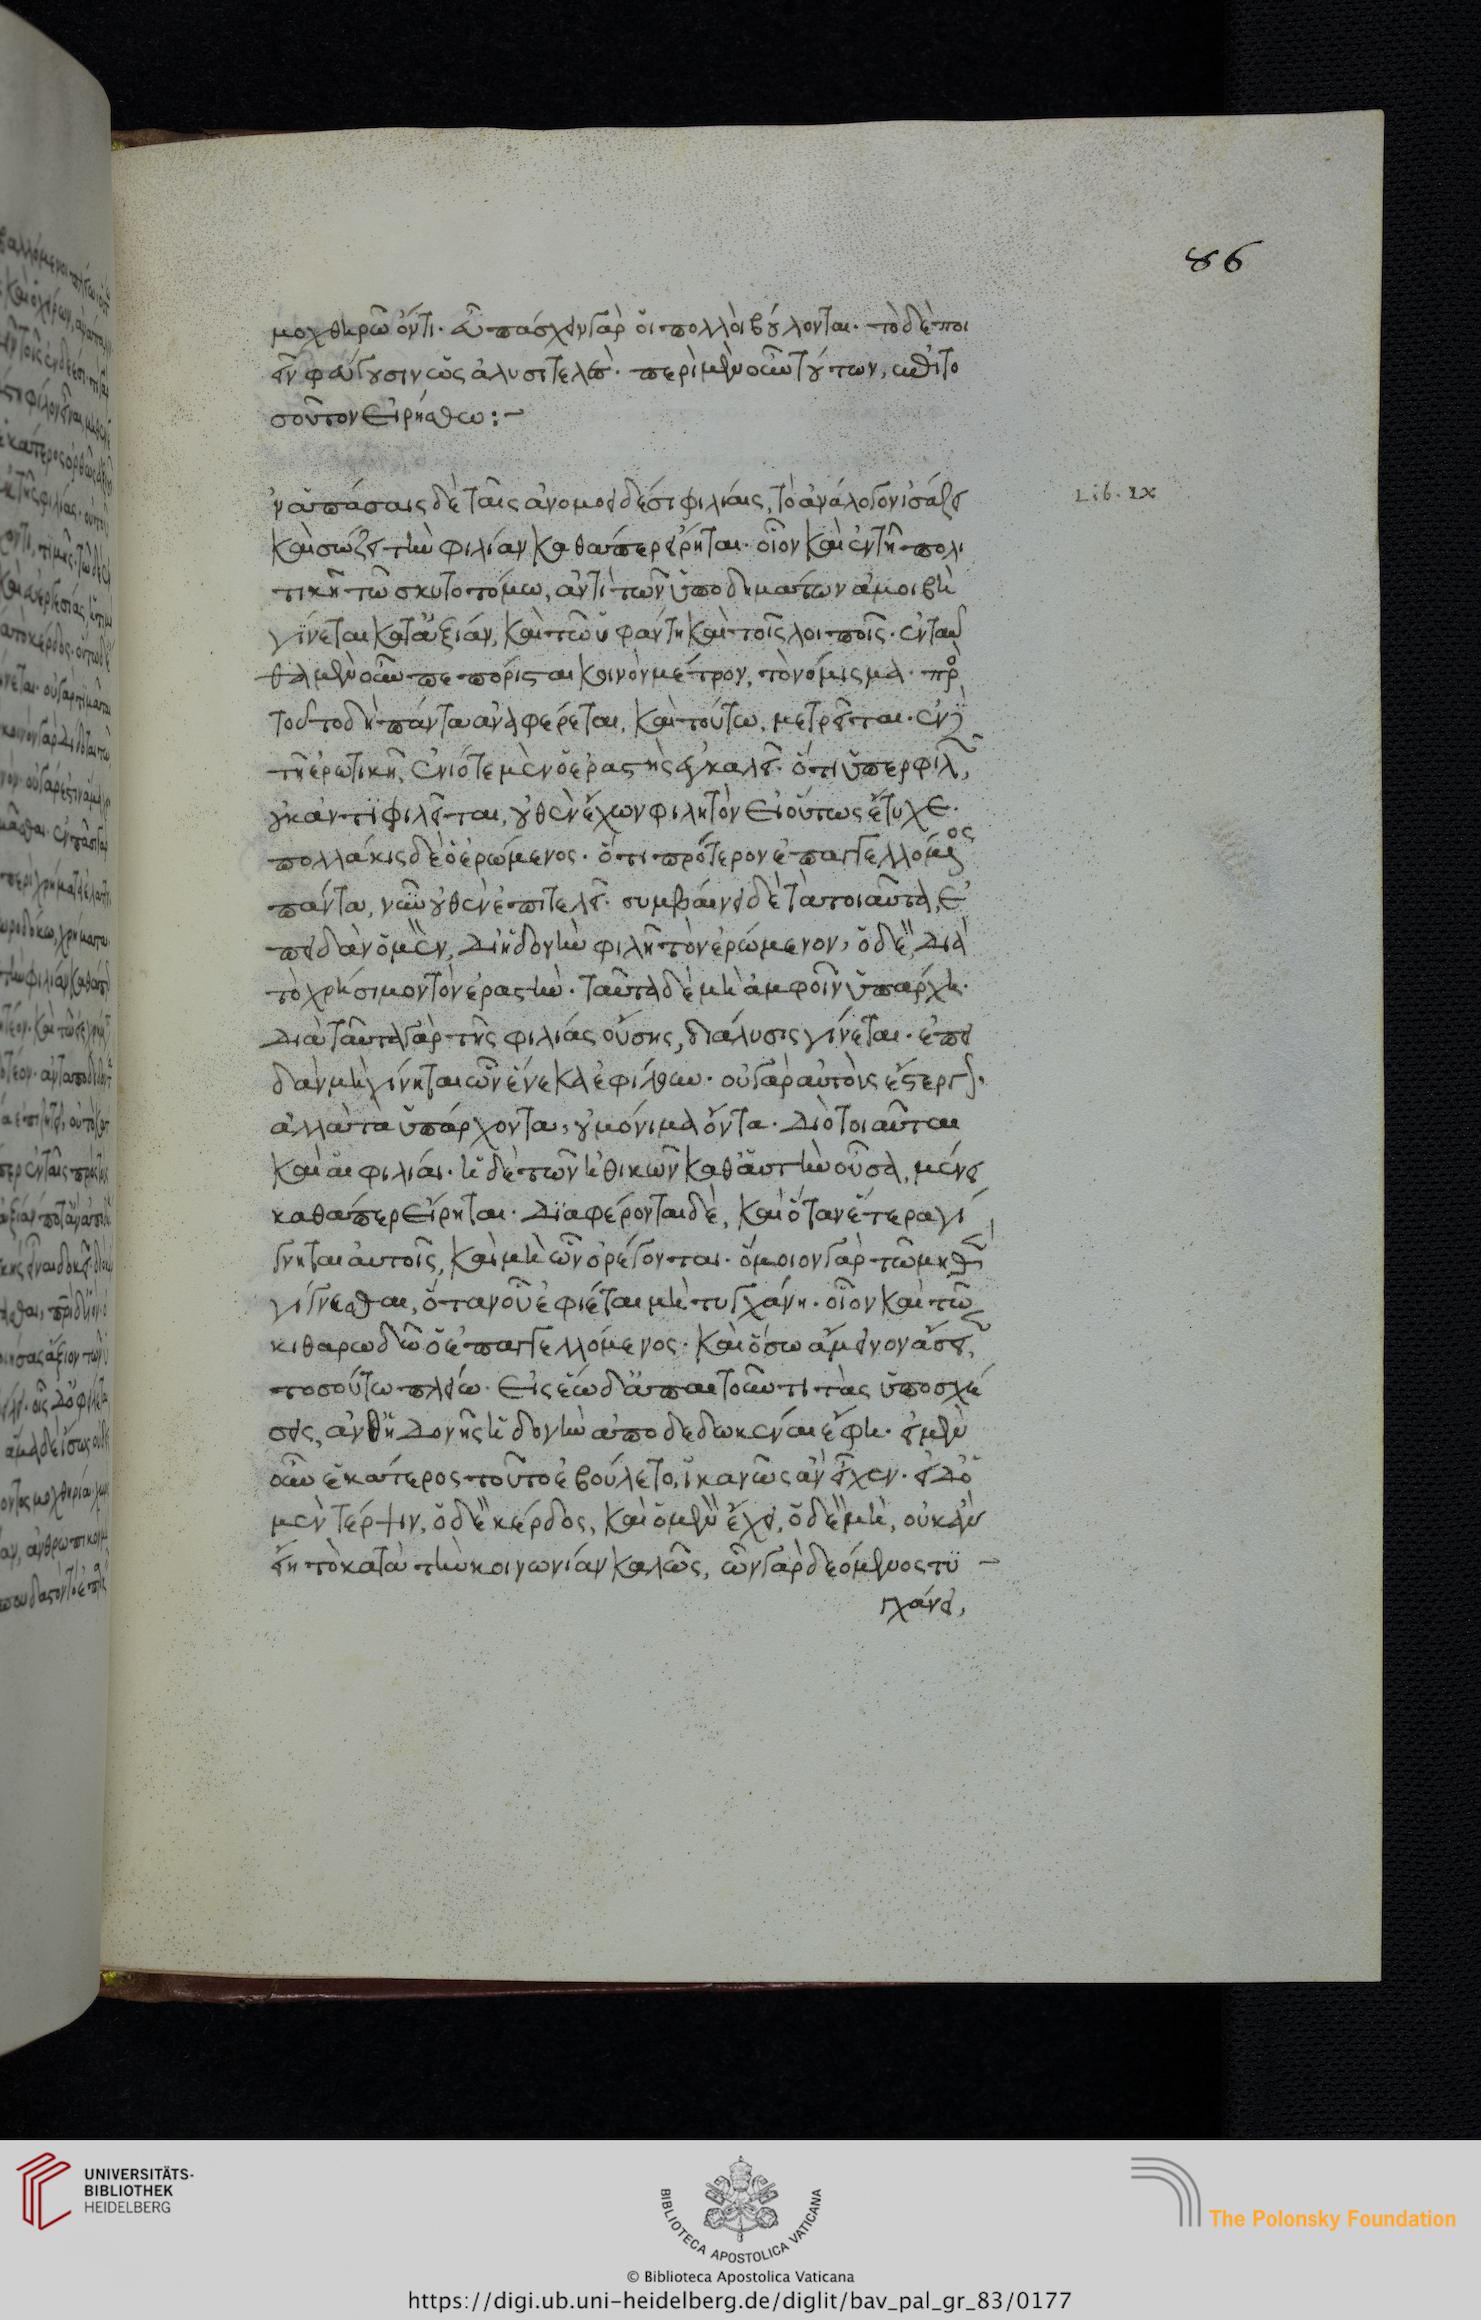 86
μοχθηρῶ ὄντι· εὖ πάσχειν γὰρ οἱ πολλοὶ βούλονται· τὸ δὲ ποι
εῖν φεύγουσιν ὡς ἀλυσιτελές· περὶ μὲν οὖν τούτων, ἐπὶ το
σοῦτον εἰρήσθω:-
Lib. IX
ν ἁπάσαις δὲ ταῖς ἀνομοειδέσι φιλίαις, τὸ ἀνάλογον ἰσάζει
καὶ σώζει τὴν φιλίαν καθάπερ εἴρηται· οἷον καὶ ἐν τῆ πολι
τικῆ τῶ σκυτοτόμω, ἀντὶ τῶν ὑποδημάτων ἀμοιβὴ
γίνεται κατ' ἀξίαν, καὶ τῶ ὑφάντη καὶ τοῖς λοιποῖς· ἐνταῦ
θα μὲν οὖν πεπόρισται κοινὸν μέτρον, τὸ νόμισμα· πρὸ
τοῦτο δὴ πάντα ἀναφέρεται, καὶ τούτω, μετρεῖται· ἐν
τῆ ἐρωτικῆ, ἐνίοτε μὲν ὁ ἐραστὴς ἐγκαλεῖ· ὅτι ὑπερφιλῶν
οὐκ ἀντιφιλεῖται, οὐθὲν ἔχων φιλητὸν εἰ οὕτως ἔτυχε·
πολλάκις δὲ ὁ ἐρώμενος· ὅτι πρότερον ἐπαγγελλόμενος
πάντα, νῦν οὐθὲν ἐπιτελεῖ· συμβαίνει δὲ τὰ τοιαῦτα, ἐ
πειδὰν ὁ μὲν, δι' ἡδονὴν φιλῆ τὸν ἐρώμενον, ὁ δὲ, διὰ
τὸ χρήσιμον τὸν ἐραστὴν· ταῦτα δὲ μὴ ἀμφοῖν ὑπάρχη·
διὰ ταῦτα γὰρ τῆς φιλίας οὔσης, διάλυσις γίνεται· ἐπει
δὰν μὴ γίνηται ὧν ἕνεκα ἐφίλουν· οὐ γὰρ αὐτοὺς ἔστεργον·
ἀλλὰ τὰ ὑπάρχοντα, οὐ μόνιμα ὄντα· διὸ τοιαῦται
καὶ αἱ φιλίαι· ἡ δὲ τῶν ἠθικῶν καθ' αὑτὴν οὖσα, μένει
καθάπερ εἴρηται· διαφέρονται δὲ, καὶ ὅταν ἕτερα γί
γνηται αὐτοῖς, καὶ μὴ ὧν ὀρέγονται· ὅμοιον γὰρ τῶ μηθὲν
γίγνεσθαι, ὅταν οὗ ἐφίεται μὴ τυγχάνη· οἷον καὶ τῶ
κιθαρωδῶ ὁ ἐπαγγελλόμενος· καὶ ὅσω ἄμεινον ᾄσειεν,
τοσούτω πλείω· εἰς ἕω δ' ἀπαιτοῦντι τὰς ὑποσχέ
σεις, ἀνθ' ἡδονῆς ἡδονὴν ἀποδεδωκέναι ἔφη· εἰ μὲν
οὖν ἑκάτερος τοῦτο ἐβούλετο, ἱκανῶς ἂν εἶχεν· εἰ δ' ὁ
μὲν τέρψιν, ὁ δὲ κέρδος, καὶ ὁ μὲν ἔχει, ὁ δὲ μὴ, οὐκ ἂν
εἴη τὸ κατὰ τὴν κοινωνίαν καλῶς, ὧν γὰρ δεόμενος τυ
γχάνει,
UNIVERSITÄTS-
BIBLIOTHEK
HEIDELBERG
BIBLIOTECA APOSTOLICA VATICANA
© Biblioteca Apostolica Vaticana
The Polonsky Foundation
https://digi.ub.uni-heidelberg.de/diglit/bav_pal_gr_83/0177